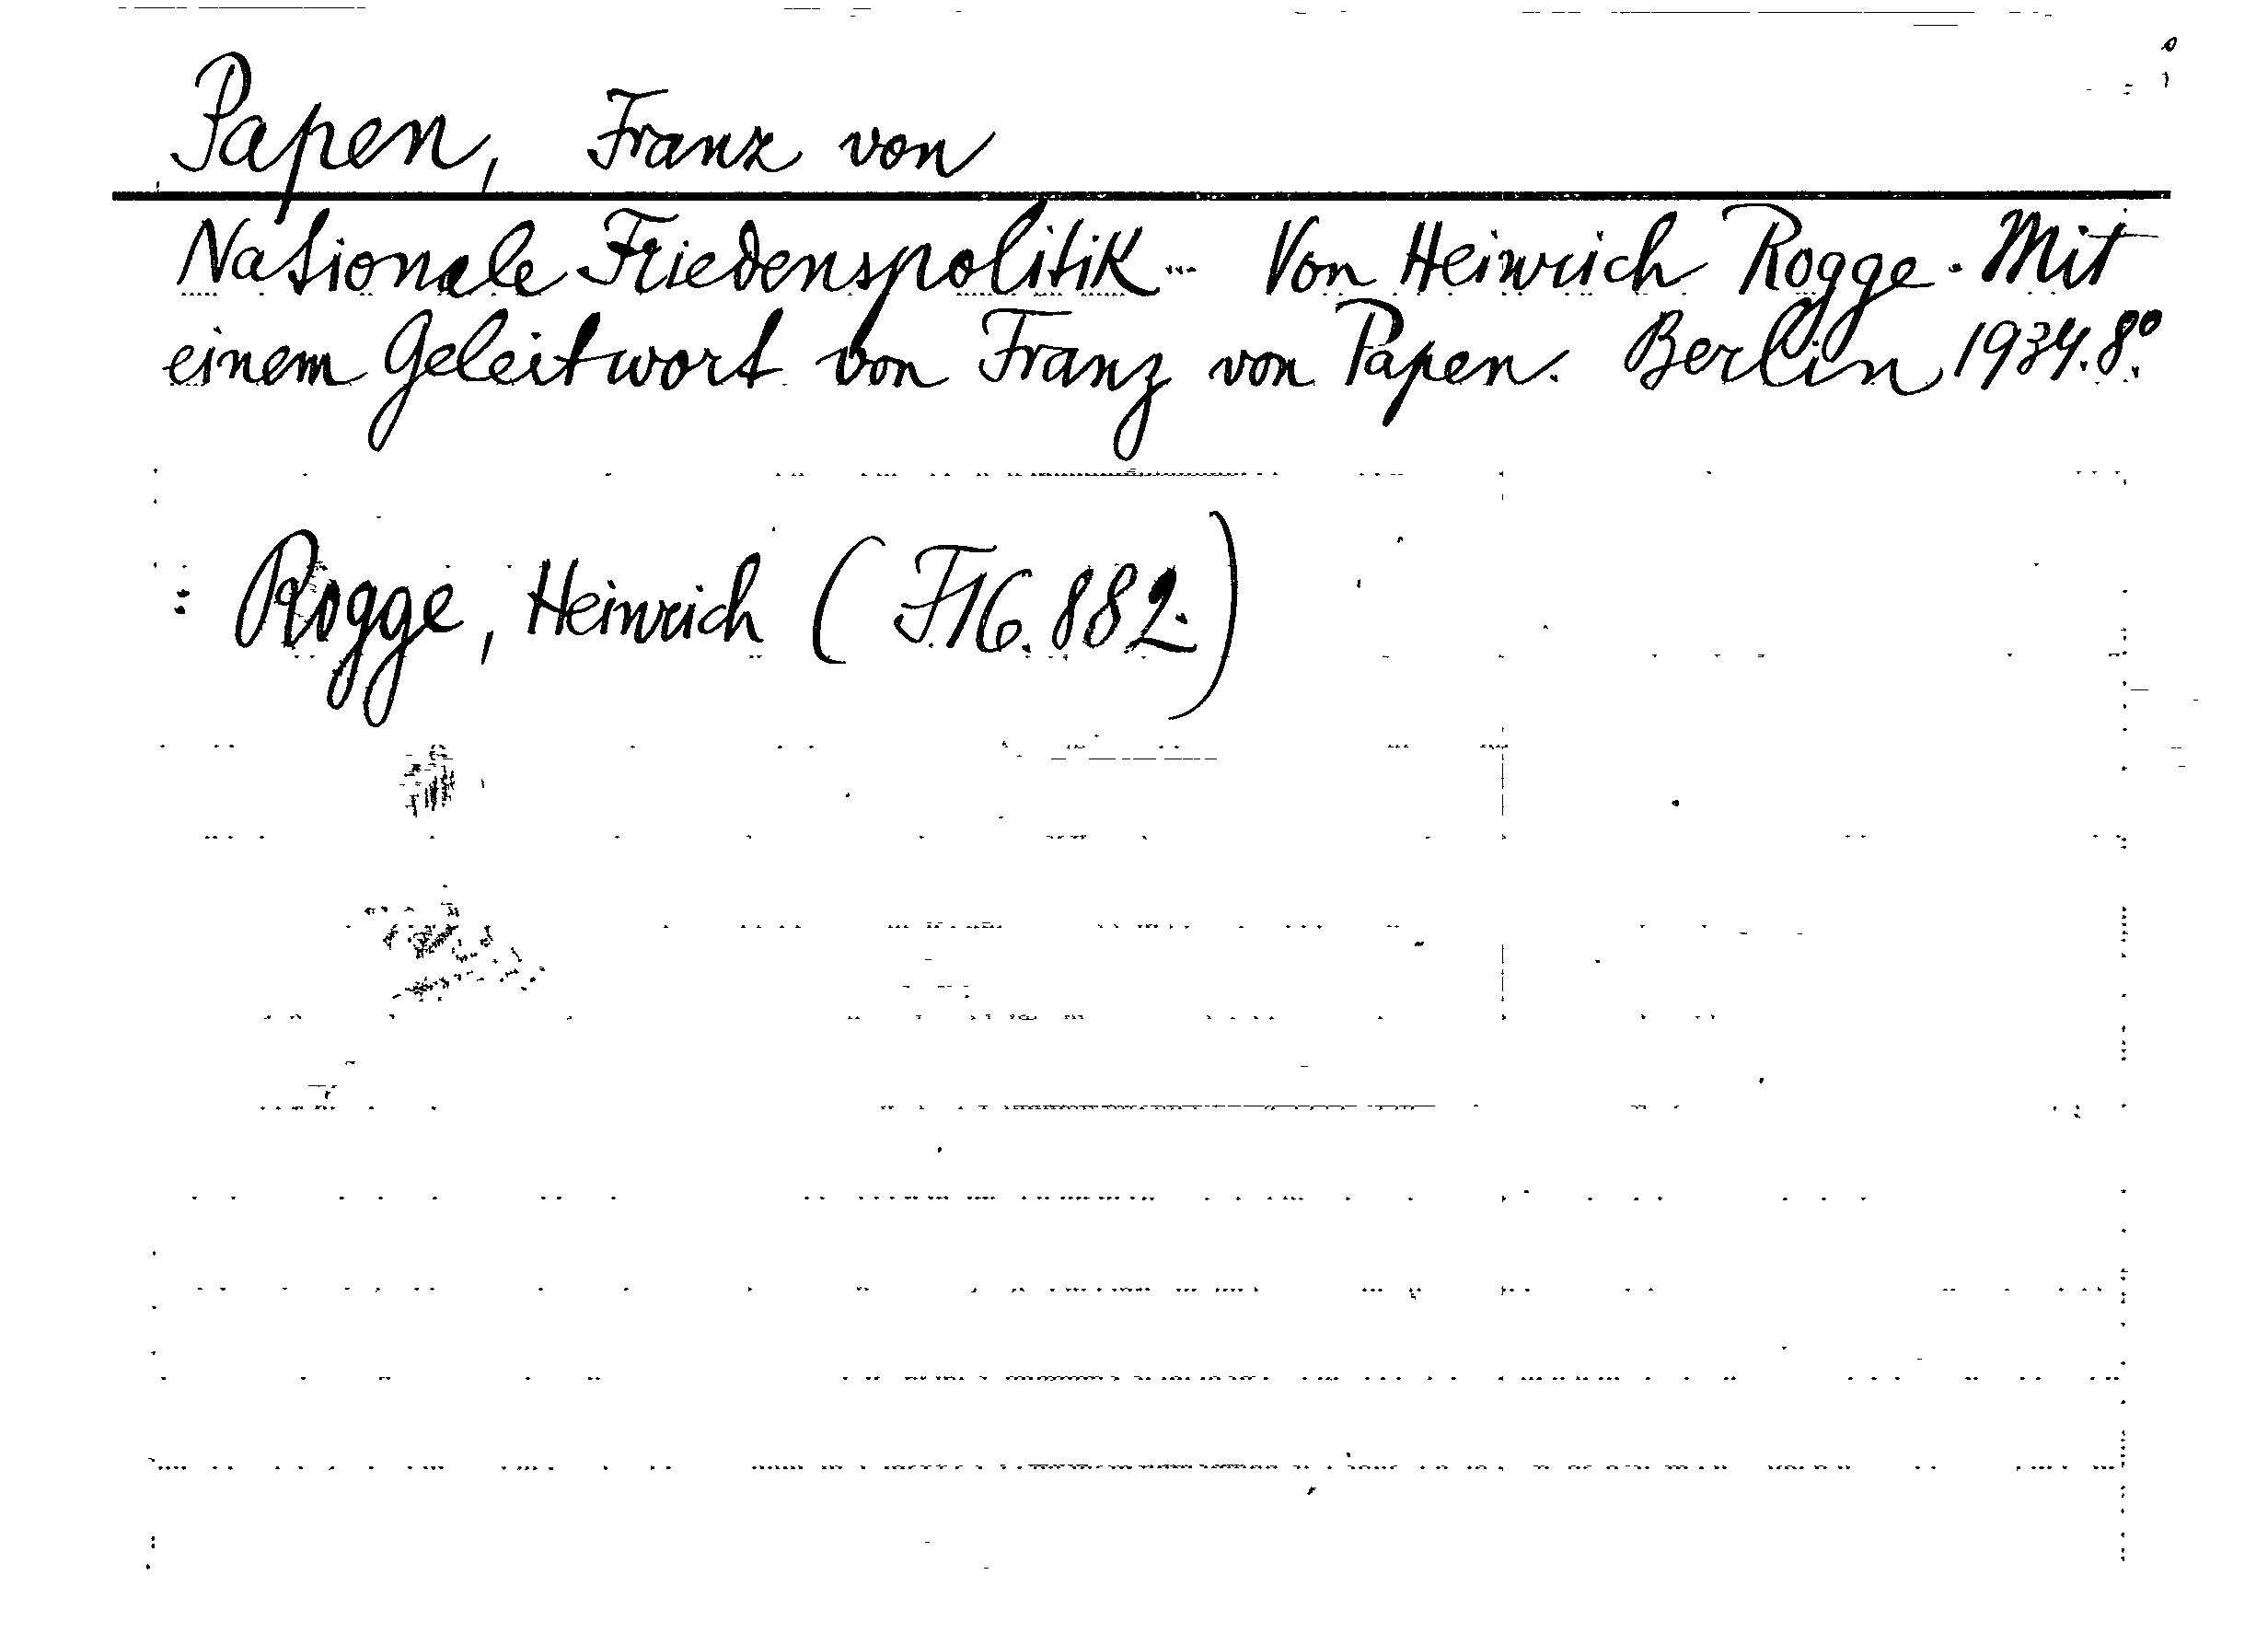 Papen, Franz von
Nationale Friedenspolitik... Von Heinrich Rogge. Mit
einem Geleitwort von Franz von Papen. Berlin 1934. 8°.
: Rogge, Heinrich (F.16.882.)